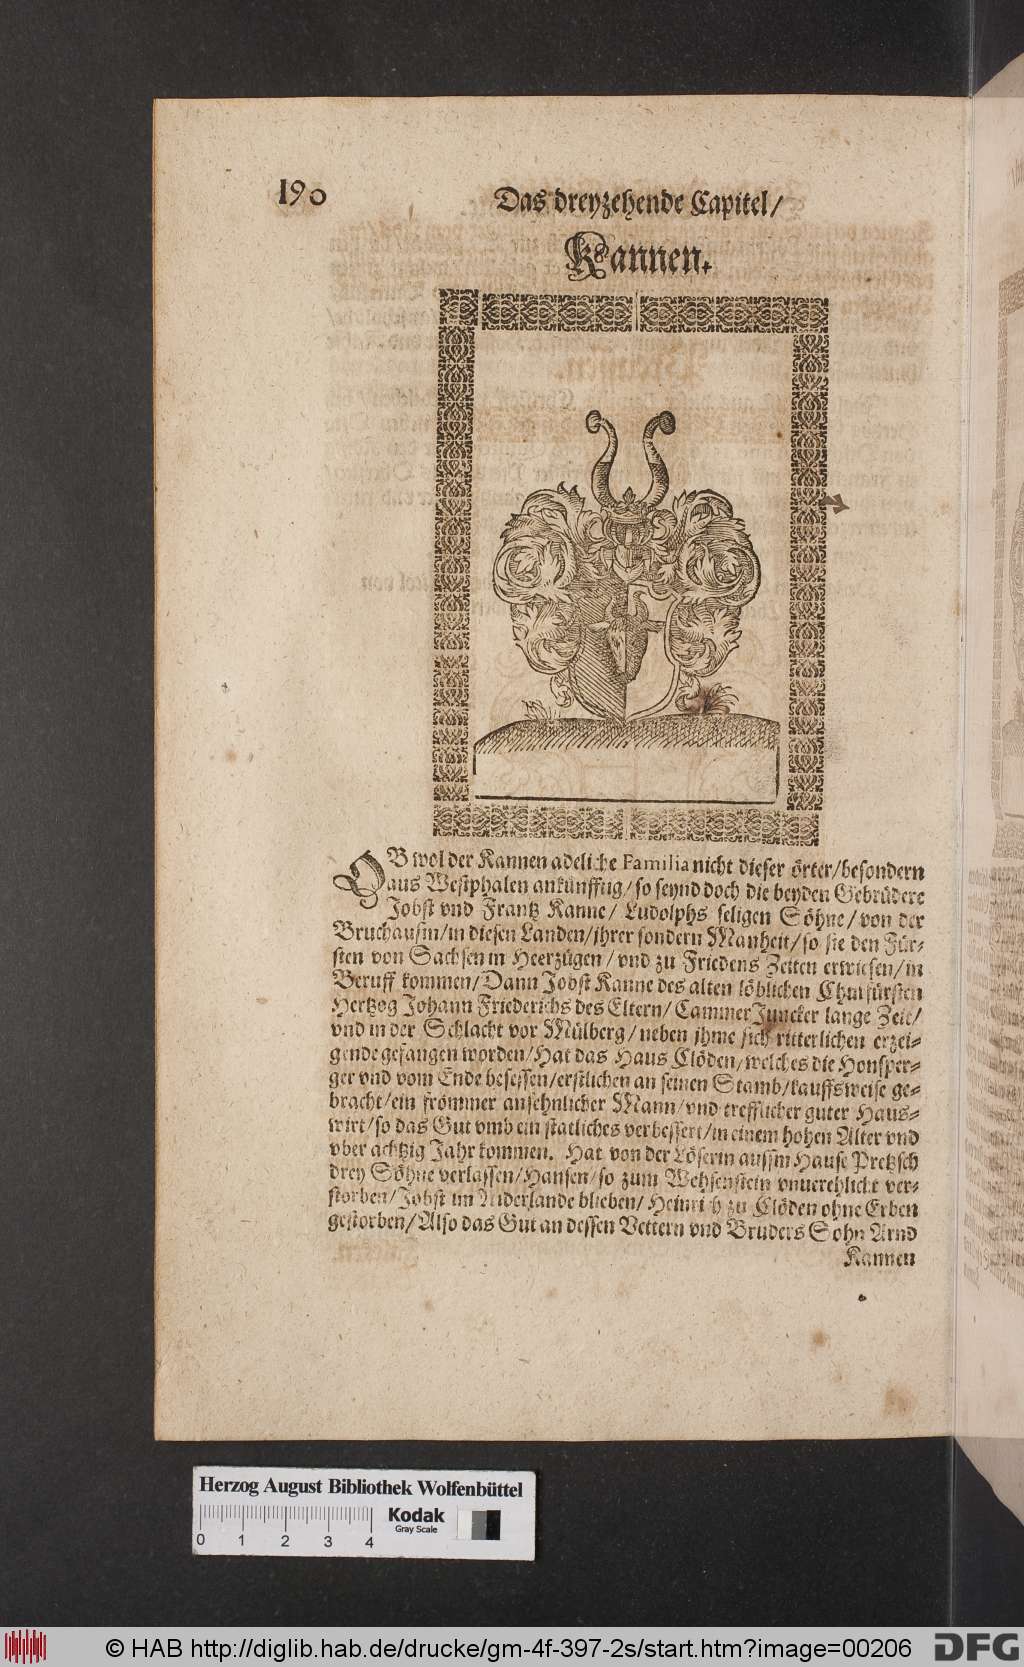 190
Das dreyzehende Capitel/
Kannen.
OB wol der Kannen adeliche Familia nicht dieser örter/besondern
aus Westphalen ankünfftig/so seynd doch die beyden Gebrüdere
Jobst vnd Frantz Kanne/ Ludolphs seligen Söhne/von der
Bruchausm/in diesen Landen/jhrer sondern Manheit/so sie den Für-
sten von Sachsen in Heerzügen/vnd zu Friedens Zeiten erwiesen/in
Beruff kommen/Dann Jobst Kanne des alten löblichen Churfürsten
Hertzog Johann Friederichs des Eltern/CammerJuncker lange Zeit/
vnd in der Schlacht vor Mülberg/neben jhme sich ritterlichen erzei-
gende gefangen worden/Hat das Haus Clöden/welches die Honsper-
ger vnd vom Ende besessen/erstlichen an seinen Stamb/kauffsweise ge-
bracht/ein frommer ansehnlicher Mann/vnd trefflicher guter Haus-
wirt/so das Gut vmb ein statliches verbessert/in einem hohen Alter vnd
vber achtzig Jahr kommen. Hat von der Löserin aussm Hause Pretzsch
drey Söhne verlassen/Hansen/so zum Wehsenstein vnverehlicht ver-
storben/Jobst im Niderlande blieben/Heinrich zu Clöden ohne Erben
gestorben/Also das Gut an dessen Vettern vnd Bruders Sohn Arnd
Kannen
Herzog August Bibliothek Wolfenbüttel
Kodak
Gray Scale
0 1 2 3 4
© HAB http://diglib.hab.de/drucke/gm-4f-397-2s/start.htm?image=00206
DFG